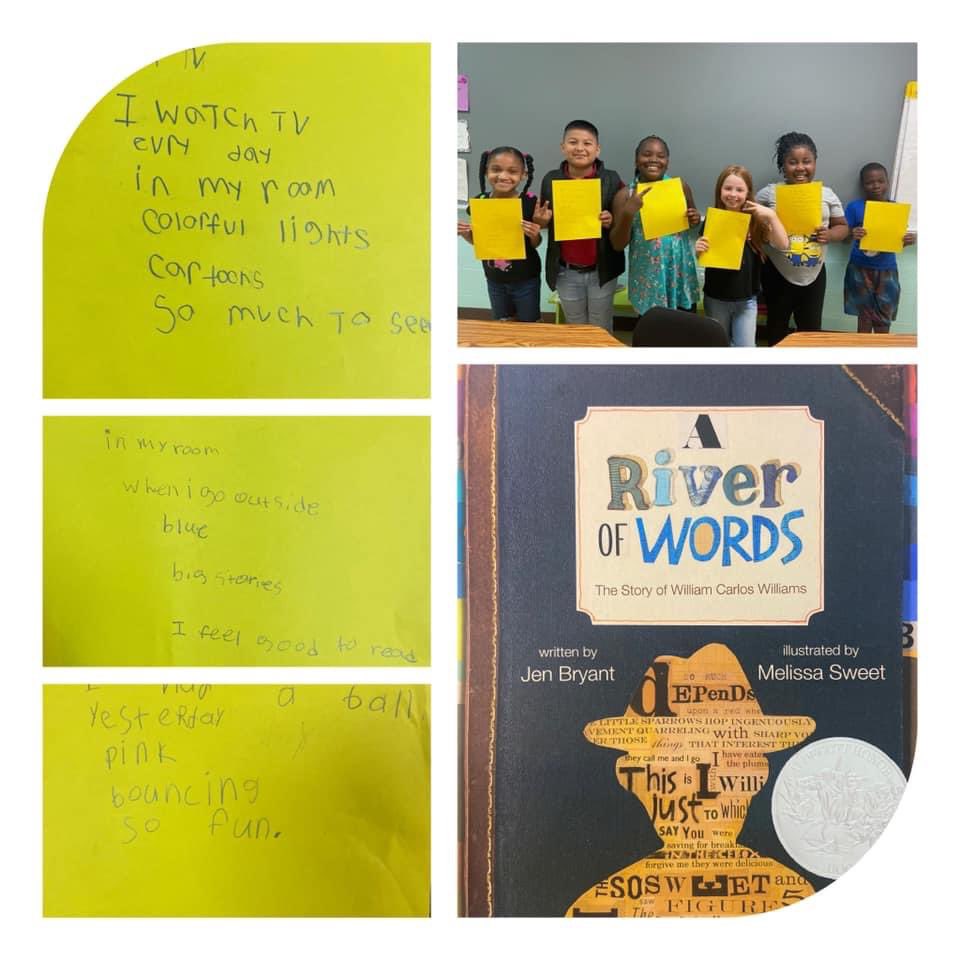 TV
I WATCH TV
evry day
in my room
colorful lights
cartoons
So much To see
in my room
when i go outside
blue
big stories
I feel good to read
I had a ball
yesterday
pink
bouncing
so fun.
A
River
OF WORDS
The Story of William Carlos Williams
written by
Jen Bryant
illustrated by
Melissa Sweet
SO MUCH
dEPenDs
upon a red whe
E LITTLE SPARROWS HOP INGENUOUSLY
VEMENT QUARRELING with SHARP VO
ER THOSE things THAT INTEREST TH
they call me and I go
I have eate
the plum
This is
with
I Willi
Just TO which
SAY YOU were
saving for breakf
IN THE ICEBOX
forgive me they were delicious
SO SWEET and
saw
FIGURE 5
The